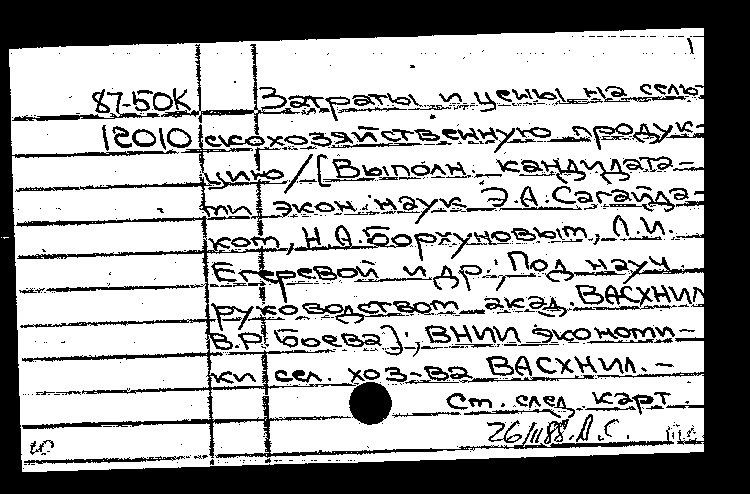 87-50К Затраты и цены на сель-
12010 скохозяйственную продук-
цию/[Выполн. кандидата-
ми экон. наук Э.А.Сагайда-
ком, Н.А.Борхуновым, Л.И.
Егеревой и др.; Под науч.
руководством акад. ВАСХНИЛ
В.Р. Боева]; ВНИИ экономи-
ки сел. хоз-ва ВАСХНИЛ. –
См. след. карт.
А.С.